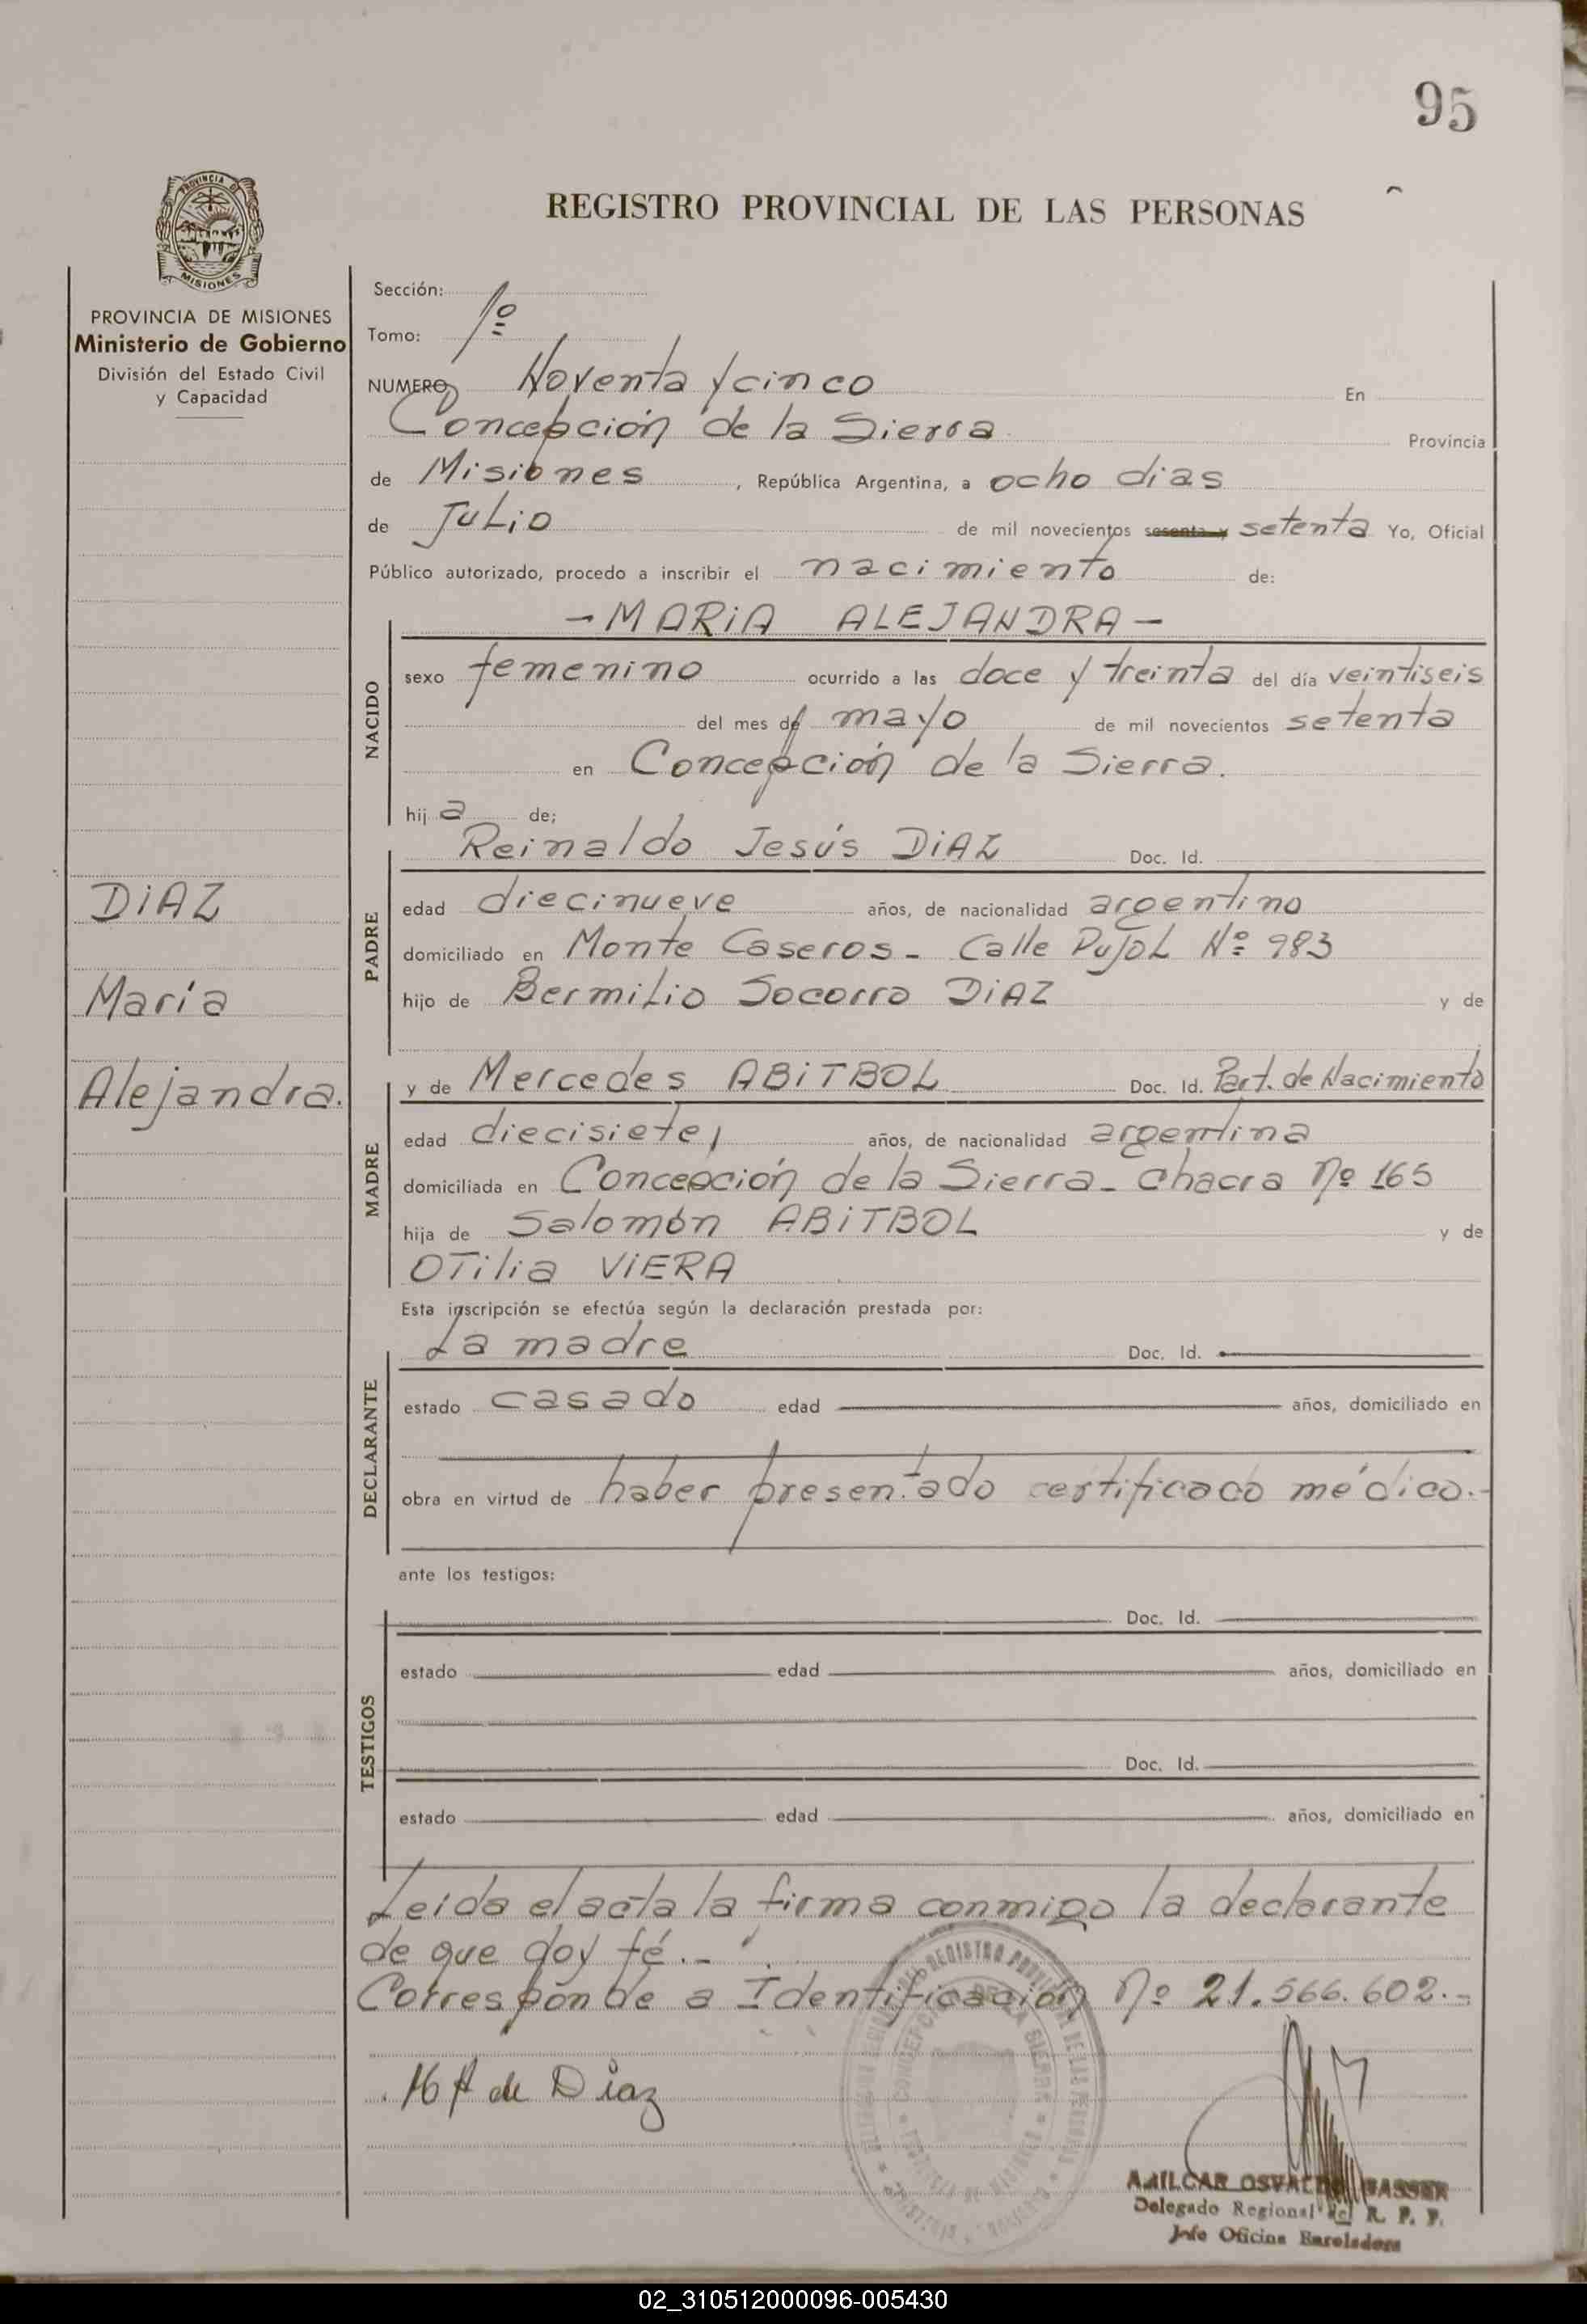 95
REGISTRO PROVINCIAL DE LAS PERSONAS
PROVINCIA DE
MISIONES
PROVINCIA DE MISIONES
Ministerio de Gobierno
División del Estado Civil
y Capacidad
DiAZ
María
Alejandra.
Sección:
Tomo: 1º
NUMERO Noventa y cinco En
Concepción de la Sierra Provincia
de Misiones, República Argentina, a ocho dias
de Julio de mil novecientos sesenta y setenta Yo, Oficial
Público autorizado, procedo a inscribir el nacimiento de:
NACIDO
- MARiA ALEJANDRA -
sexo femenino ocurrido a las doce y treinta del día veintiseis
del mes de mayo de mil novecientos setenta
en Concepción de la Sierra.
hij a de;
PADRE
Reinaldo Jesús DiAZ Doc. Id.
edad diecinueve años, de nacionalidad argentino
domiciliado en Monte Caseros - Calle PuJoL Nº 983
hijo de Bermilio Socorro DiAZ y de
MADRE
y de Mercedes ABiTBOL Doc. Id. Part. de Nacimiento
edad diecisiete, años, de nacionalidad argentina
domiciliada en Concepción de la Sierra - Chacra Nº 165
hija de Salomón ABiTBOL y de
OTilia ViERA
Esta inscripción se efectúa según la declaración prestada por:
DECLARANTE
La madre Doc. Id.
estado casado edad años, domiciliado en
obra en virtud de haber presentado certificado médico.-
ante los testigos:
TESTIGOS
Doc. Id.
estado edad años, domiciliado en
Doc. Id.
estado edad años, domiciliado en
Leída el acta la firma conmigo la declarante
de que doy fé.-
Corresponde a Identificación Nº 21.566.602.-
M A de Díaz
CONCEPCION DE LA SIERRA
PROVINCIA DE MISIONES
AMILCAR OSVALDO
Delegado Regional del R. P. P.
Jefe Oficina
02_310512000096-005430